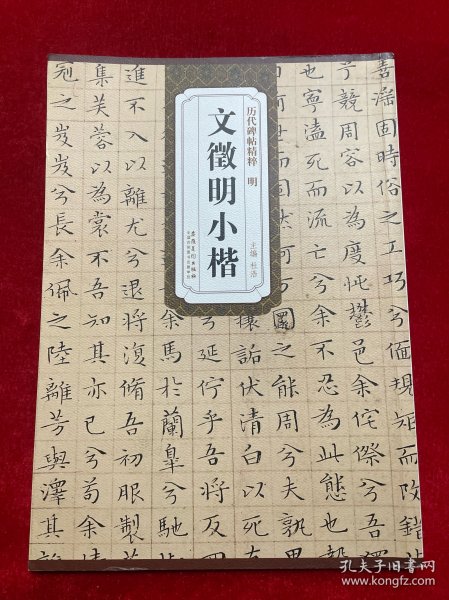 历代碑帖精粹 明
文徵明小楷
主编 杜浩
安徽美术出版社
全国百佳图书出版单位
善淫固時俗之工巧兮偭規矩而改錯
兮競周容以為度忳鬱邑余侘傺兮吾
也寧溘死而流亡兮余不忍為此態也
世而固然何方圜之能周兮夫孰異
攘詬伏清白以死直
兮延佇乎吾將反
余馬於蘭皋兮馳
進不入以離尤兮退將復脩吾初服製芰
集芙蓉以為裳不吾知其亦已兮苟余情
冠之岌岌兮長余佩之陸離芳與澤其
孔夫子旧书网
www.kongfz.com